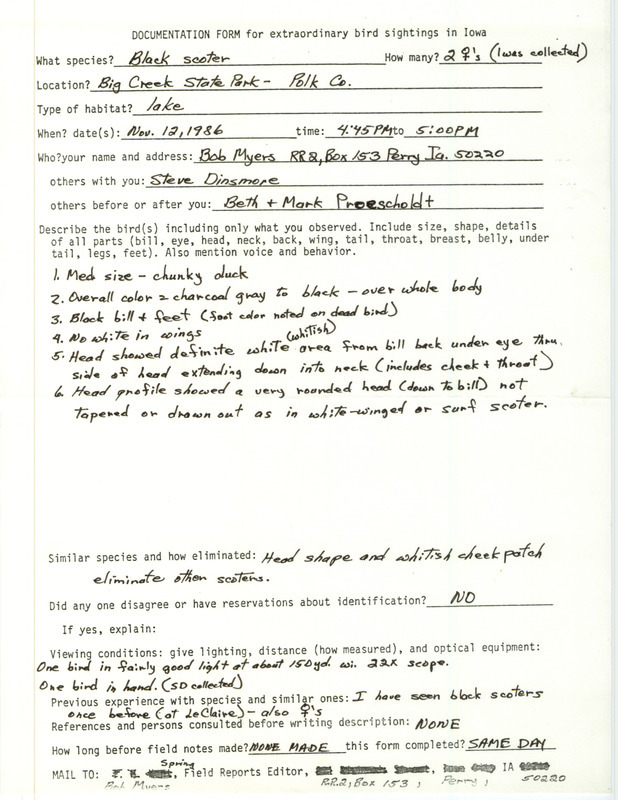 DOCUMENTATION FORM for extraordinary bird sightings in Iowa
What species? Black scoter How many? 2 ♀'s (1 was collected)
Location? Big Creek State Park - Polk Co.
Type of habitat? lake
When? date(s): Nov. 12, 1986 time: 4:45PM to 5:00PM
Who? your name and address: Bob Myers RR2, Box 153 Perry Ia. 50220
others with you: Steve Dinsmore
others before or after you: Beth + Mark Proescholdt
Describe the bird(s) including only what you observed. Include size, shape, details
of all parts (bill, eye, head, neck, back, wing, tail, throat, breast, belly, under
tail, legs, feet). Also mention voice and behavior.
1. Med size - chunky duck
2. Overall color = charcoal gray to black - over whole body
3. Black bill + feet (foot color noted on dead bird)
4. No white in wings
5. Head showed definite white (whitish) area from bill back under eye thru.
side of head extending down into neck (includes cheek + throat)
6. Head profile showed a very rounded head (down to bill) not
tapered or drawn out as in white-winged or surf scoter.
Similar species and how eliminated: Head shape and whitish cheek patch
eliminate other scoters.
Did any one disagree or have reservations about identification? NO
If yes, explain:
Viewing conditions: give lighting, distance (how measured), and optical equipment:
One bird in fairly good light at about 150yd. wi. 22X scope.
One bird in hand. (SD collected)
Previous experience with species and similar ones: I have seen black scoters
once before (at LeClaire) - also ♀'s
References and persons consulted before writing description: NONE
How long before field notes made? NONE MADE this form completed? SAME DAY
MAIL TO: Spring, Field Reports Editor, IA
Bob Myers R.R.2, Box 153, Perry, 50220